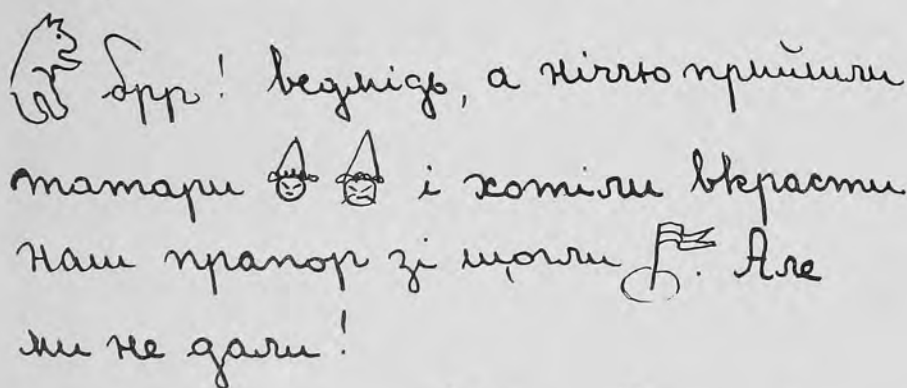 брр! ведмідь, а ніччю прийшли
татари і хотіли вкрасти
наш прапор зі щогли. Але
ми не дали!